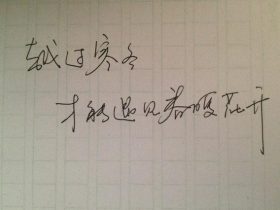 越过寒冬
才能遇见春暖花开